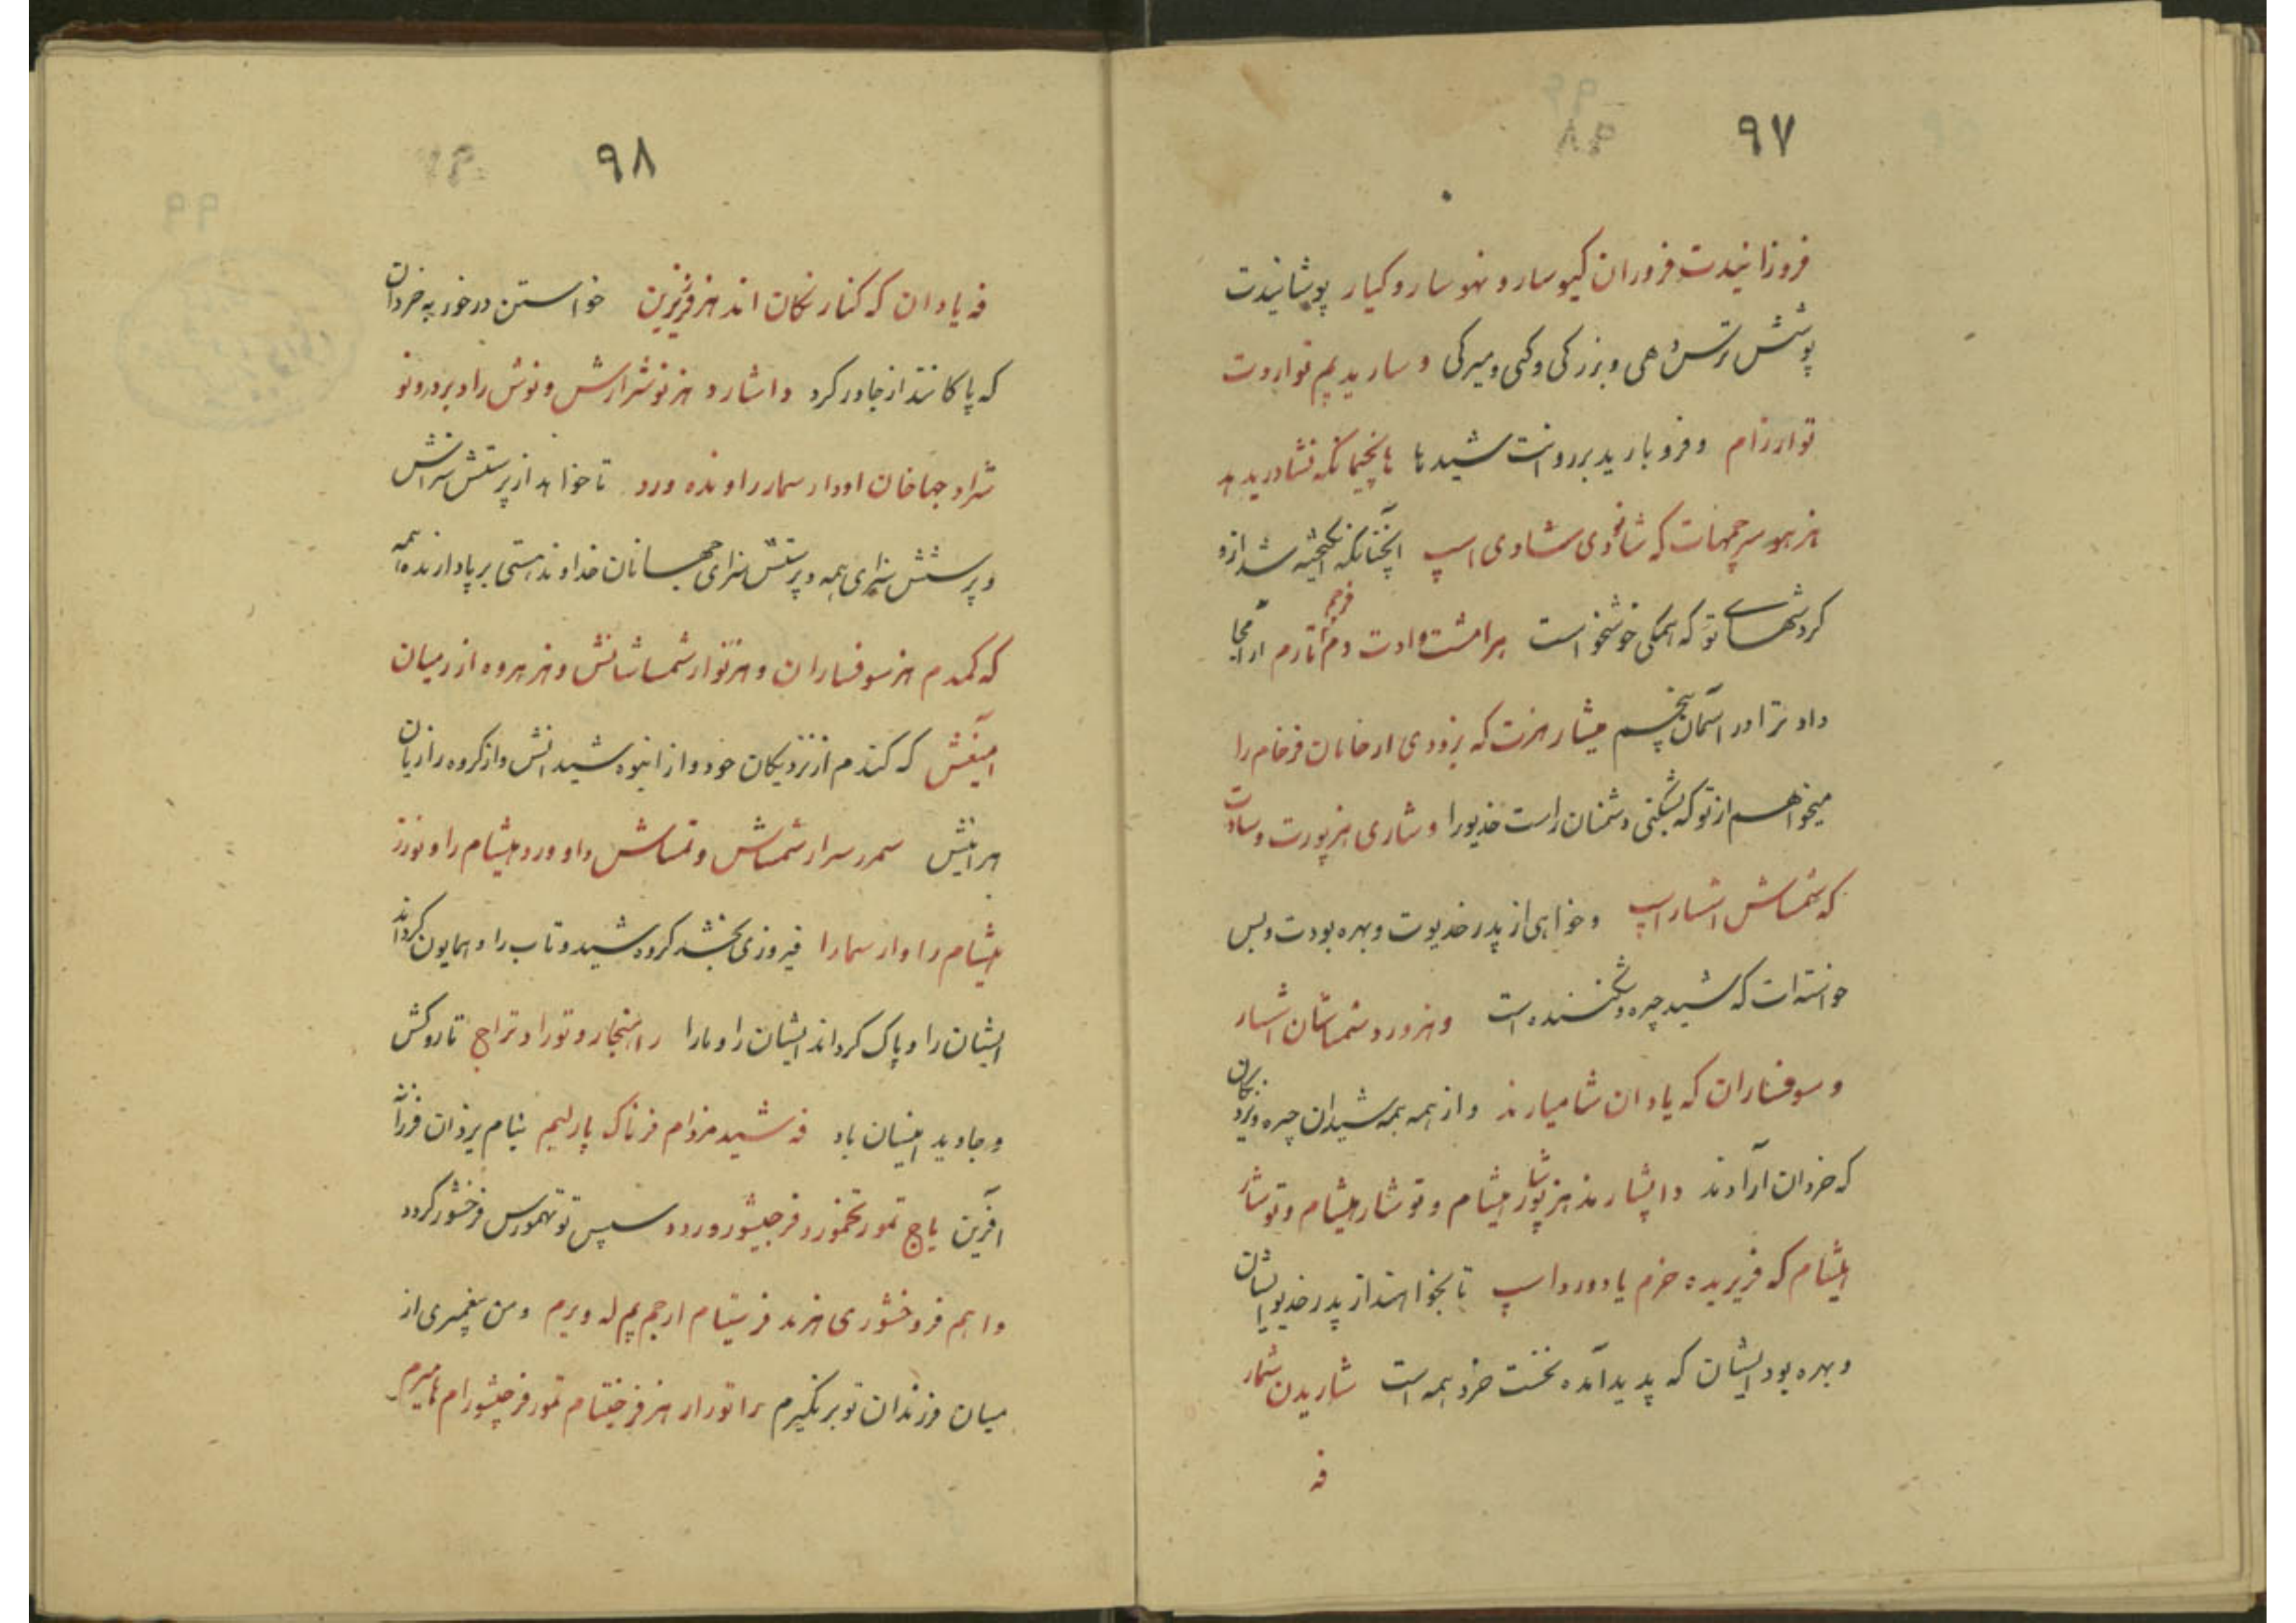 ۹۷
فروزانیدت فروران کیوسار و نهوسار و کیار پوشانیدت
پوشش ترس دهی و بزرگی و کی و میرکی و سارید یم تواردت
توارزام و فرو بارید بر روانت شیدها هانچیمانکه نشادرید هد
هنر هور سرجمهات که شانودی شاوی اسپ آنچنانکه انگیخته شد ازو
کردشهای تو که همگی خوشخو است برامشت وادت دم اتارم ار آمجا
داد ترا در آسمان پنجم میشار هنرت که بزودی ارخانان فرخام را
میخواهم از تو که بشکنی دشمنان راست خدیو را و شاری هنر پورت و سادت
که شماش اشاراسپ و خواهی از پدر خدیوت و بهره بودت و بس
خواسته ات که شید چره و شکننده است و هنر ورد شماشان اشسار
و سوفساران که یادان شامیارند و از همه همه شیدان چیره و نزدیکان
که خردان آزادند و اپشارند هنر پورشا ایشام و توشار ایشام و توشار
ایشام که فریریده خرم یادورد اسپ تا بخواهند از پدر خدیو ایشان
و بهره بود ایشان که پدید آمده نخست خرد همه است شاریدن شمار
فه
۹۸
فه یادان که کنارنکان اند هنر فرنزین خواستن درخور به خردان
که پاکانند از جاور کرد و اشارد هنر نوشرارش و نوش راد بردرونو
شراد جهاخان اودار سمار راونده ورد تا خواهد از پرستش سزاش
و پرستش سزای همه و پرستش سزای جهانان خداوند هستی بر پا دارنده همه
که کمدم هنر سوفساران و هنر توار شماشانش و هنر هروه از رمیان
امیغش که کندم از نزدیکان خود و از انبوه شیدانش و از کروه راز یان
هرانیش سمرر سرار شماش و تماش داو ورد هیشام را و نورز
هیشام را وار سمارا فیروزی بخشد کروه شید و تاب را و همایون گرداند
ایشان را و پاک گرداند ایشان را و مارا راهنجار و تورا و تراج تا روکش
و جاوید اینسان باد فه شید مزدام فرناک پارلیم بنام یزدان فرزانه
آفرین یاج تمور تخمورد فرجیشور وردد سپس تو تهمورس فرخشور گردد
و اهم فروخشوری هنرند فرسیتام ارجم یم له ویرم و من پیغمبری از
میان فرزندان تو برنگیرم راتورار هنر فرخیتام تمور فرجیشورام هامیرم